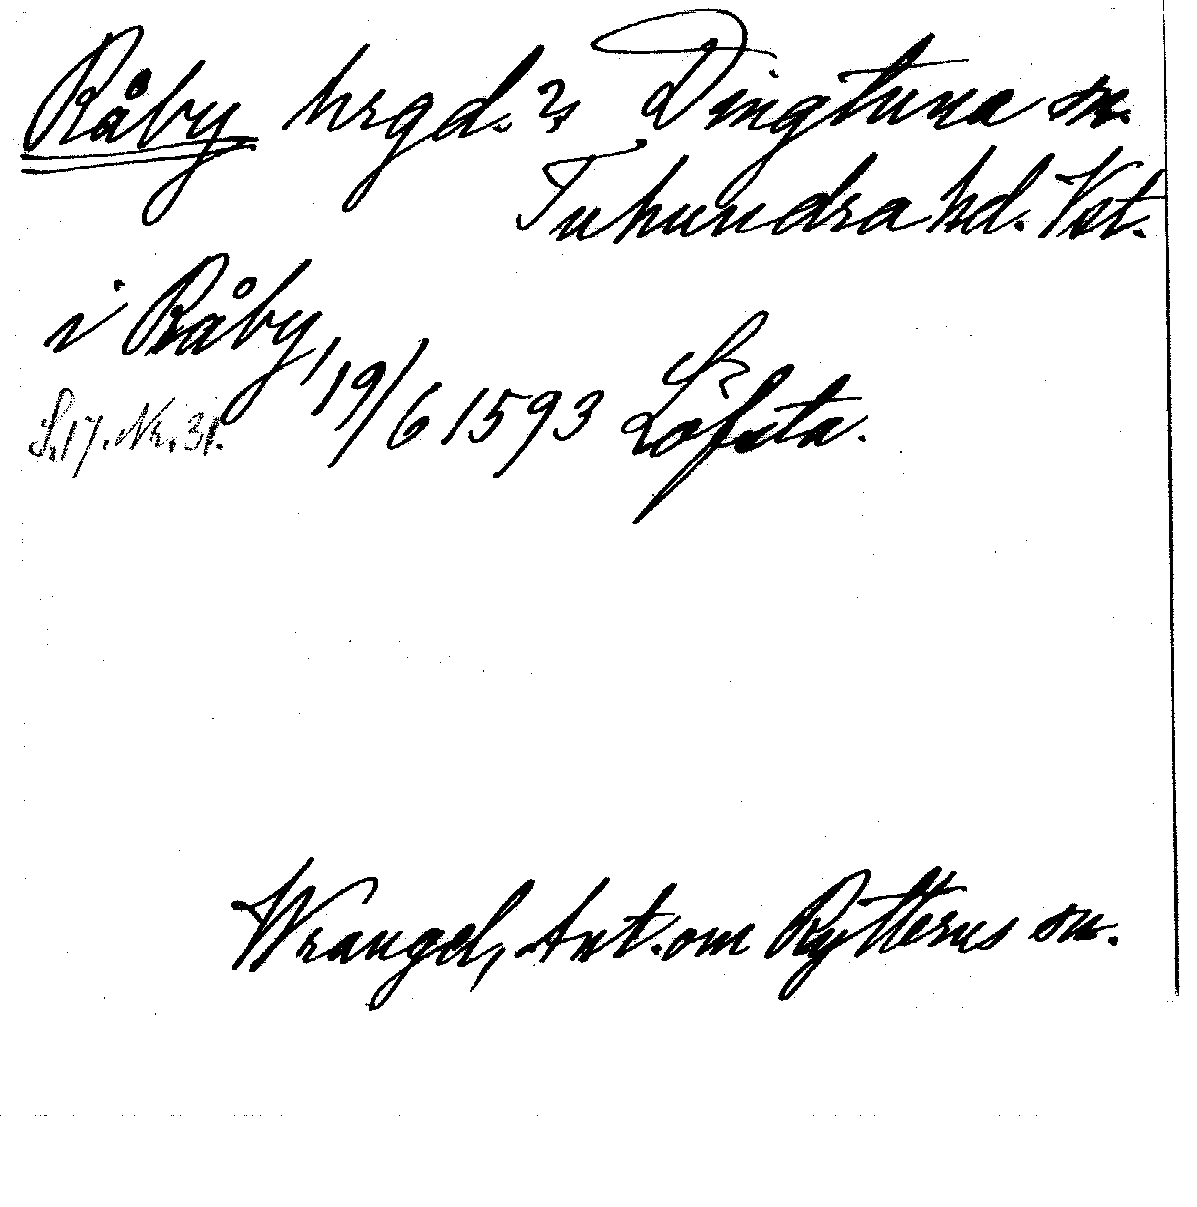 Råby hrgd. Dingtuna sn.
Tuhundra hd. Vst.
i Råby, 19/6 1593 Löfsta.
S. 17. Nr. 31.
Wrangel, Ant. om Rytterns sn.